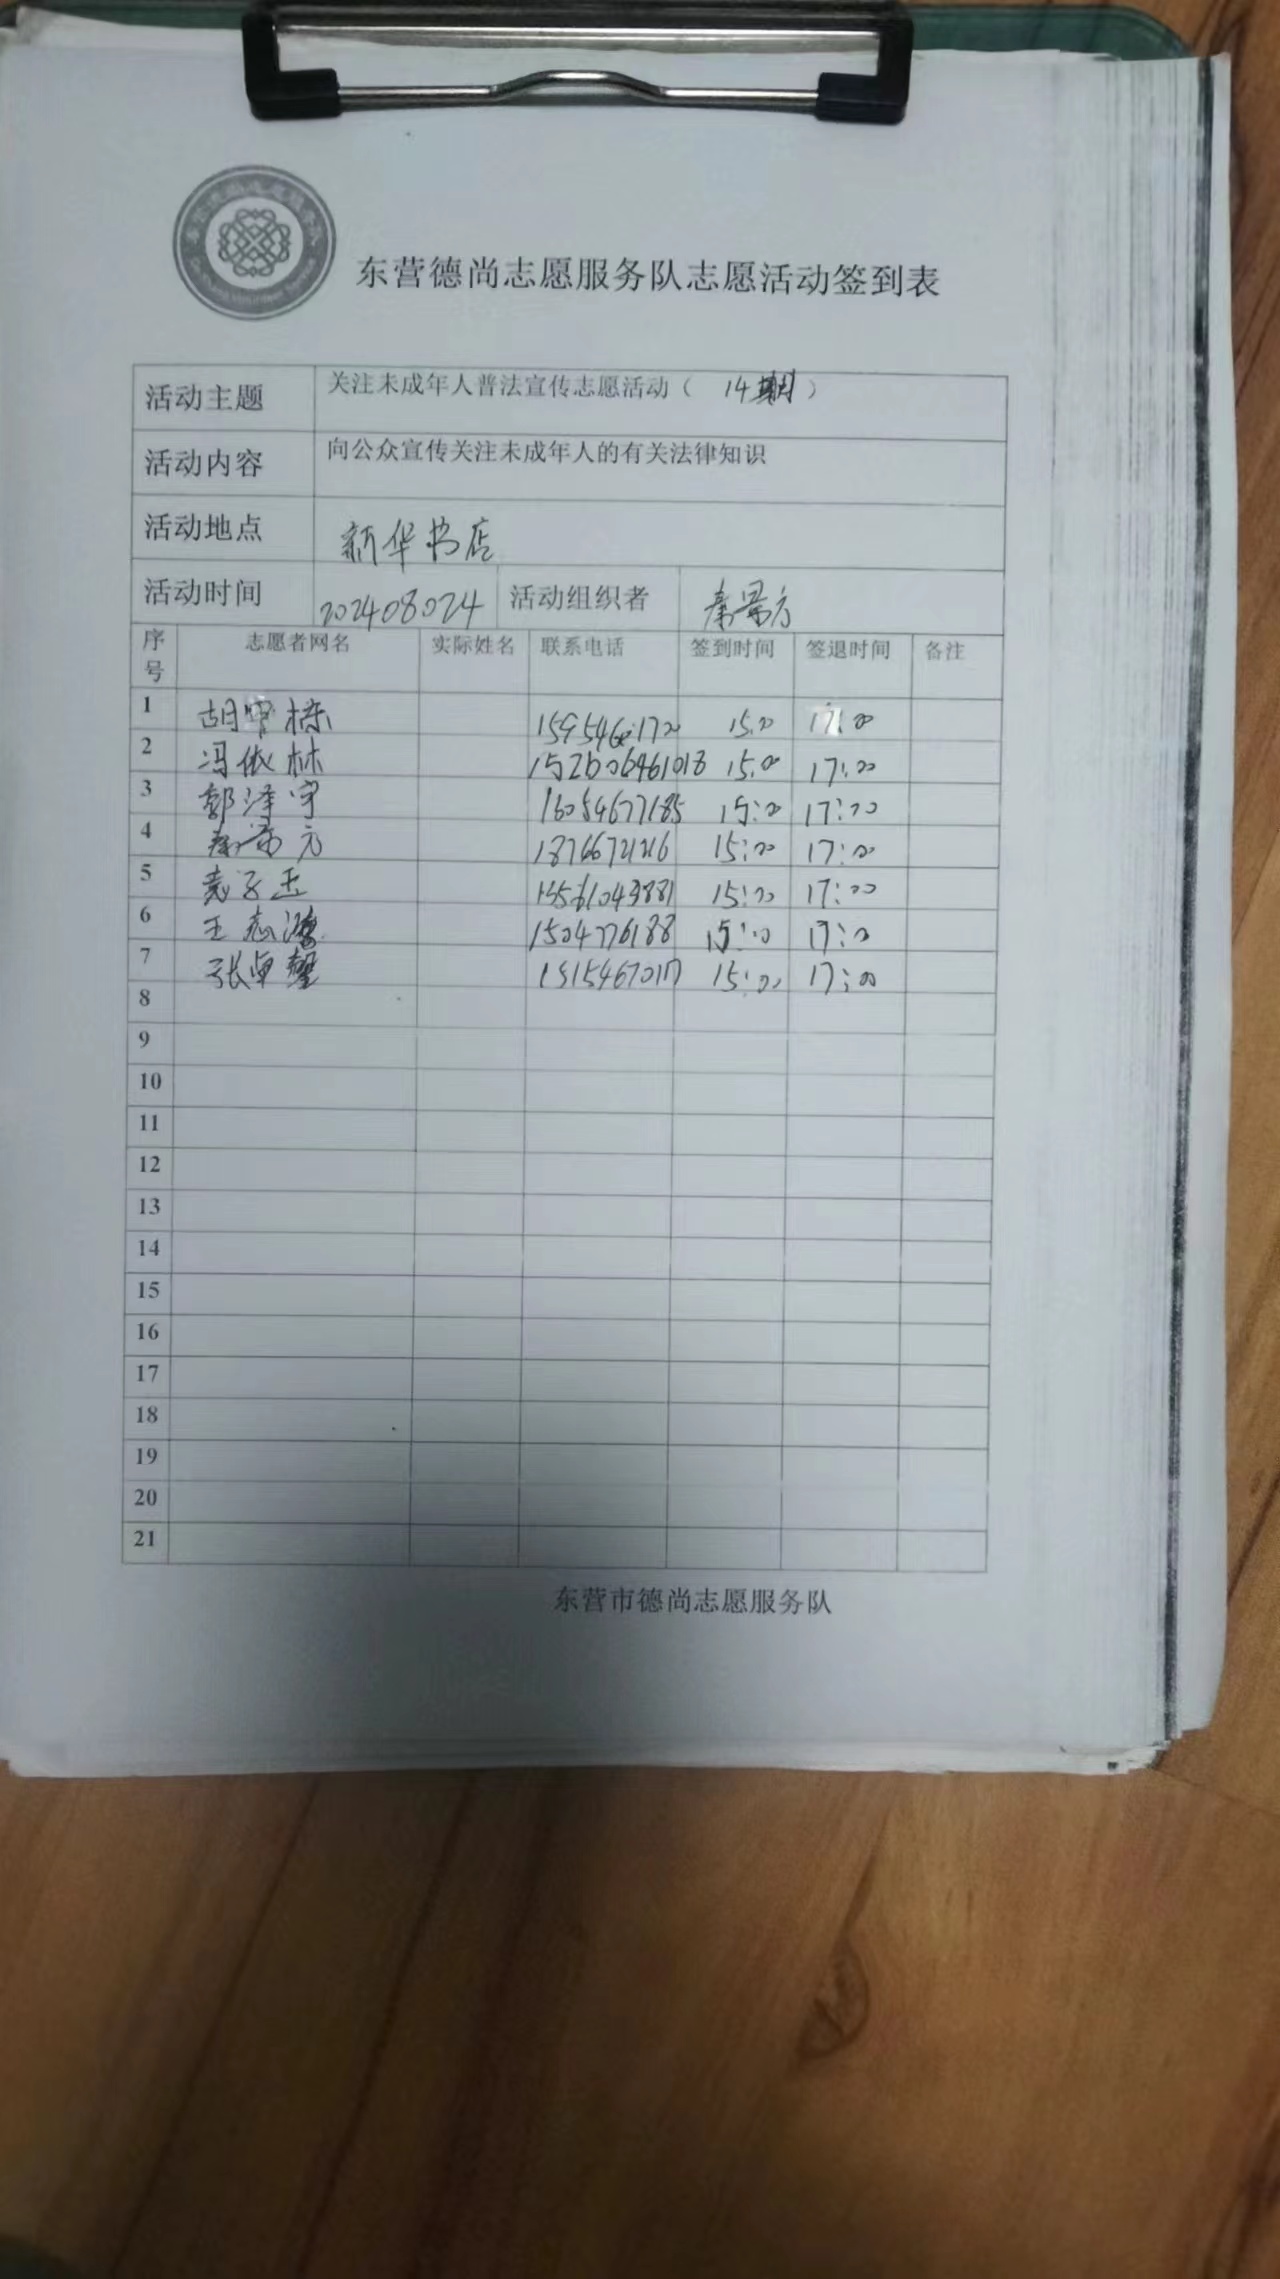 东营德尚志愿服务队志愿活动签到表
活动主题 关注未成年人普法宣传志愿活动（ 14期 ）
活动内容 向公众宣传关注未成年人的有关法律知识
活动地点 新华书店
活动时间 202408024 活动组织者
序号 志愿者网名 实际姓名 联系电话 签到时间 签退时间 备注
1 胡 栋 15:00 17:00
2 冯依林 152606461018 15:00 17:00
3 郭泽宇 16054677185 15:00 17:00
4 15:00 17:00
5 15:00 17:00
6 王志鸿 15:00 17:00
7 张卓 15:00 17:00
8
9
10
11
12
13
14
15
16
17
18
19
20
21
东营市德尚志愿服务队